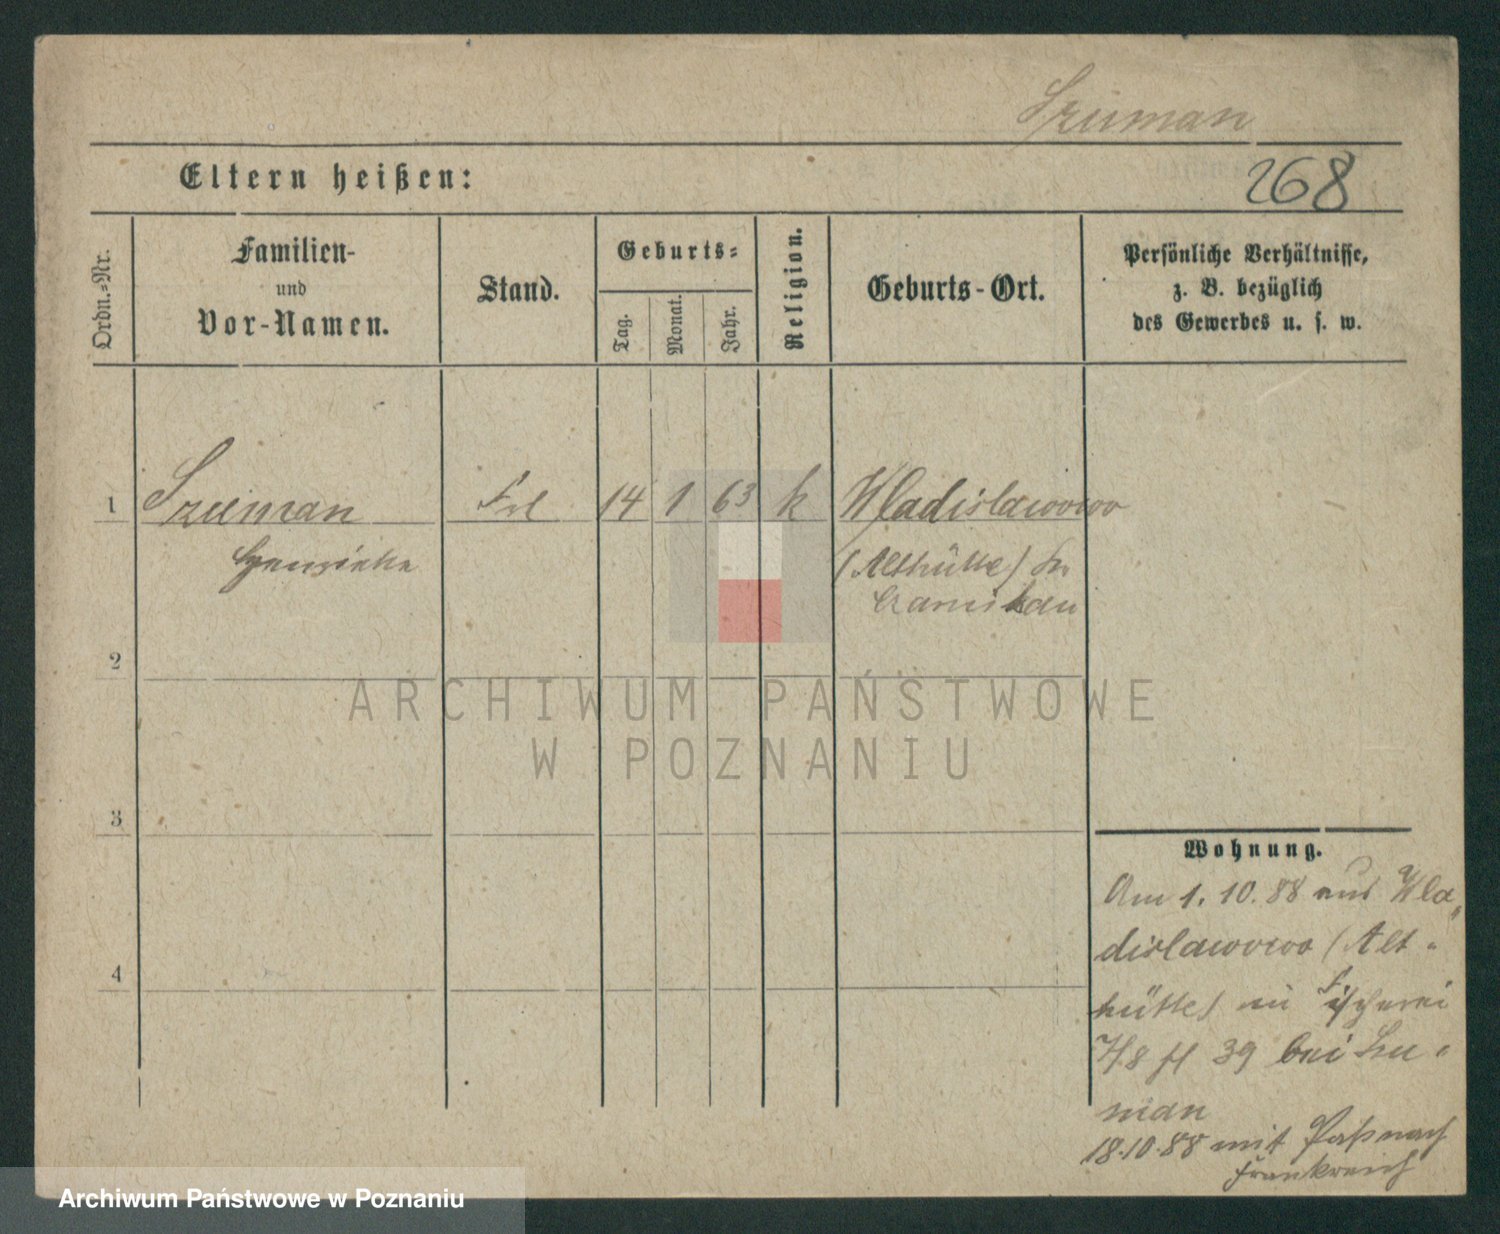 Szuman
268
Eltern heißen:
Ordn.-Nr.
Familien-
und
Vor-Namen.
Stand.
Geburts-
Tag.
Monat.
Jahr.
Religion.
Geburts-Ort.
Persönliche Verhältnisse,
z. B. bezüglich
des Gewerbes u. s. w.
1 Szuman Frl 14 1 63 k Wladislawowo
Henriette (Althütte) Kr.
Czarnikau
2
3
4
Wohnung.
Am 1. 10. 88 aus Wla-
dislawowo (Alt-
hütte) in Fischerei
7/8 39 bei Szu-
man
18.10.88 mit Paß nach
Frankreich
ARCHIWUM PAŃSTWOWE
W POZNANIU
Archiwum Państwowe w Poznaniu